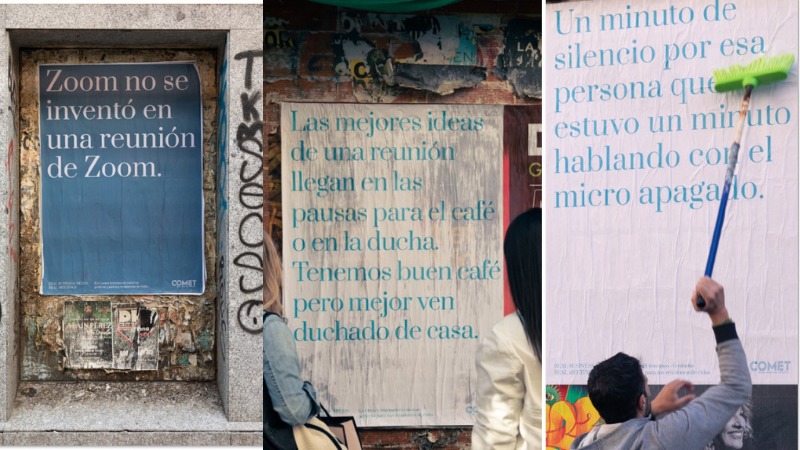 Zoom no se
inventó en
una reunión
de Zoom.
COMET
Las mejores ideas
de una reunión
llegan en las
pausas para el café
o en la ducha.
Tenemos buen café
pero mejor ven
duchado de casa.
Un minuto de
silencio por esa
persona que
estuvo un minuto
hablando con el
micro apagado.
COMET